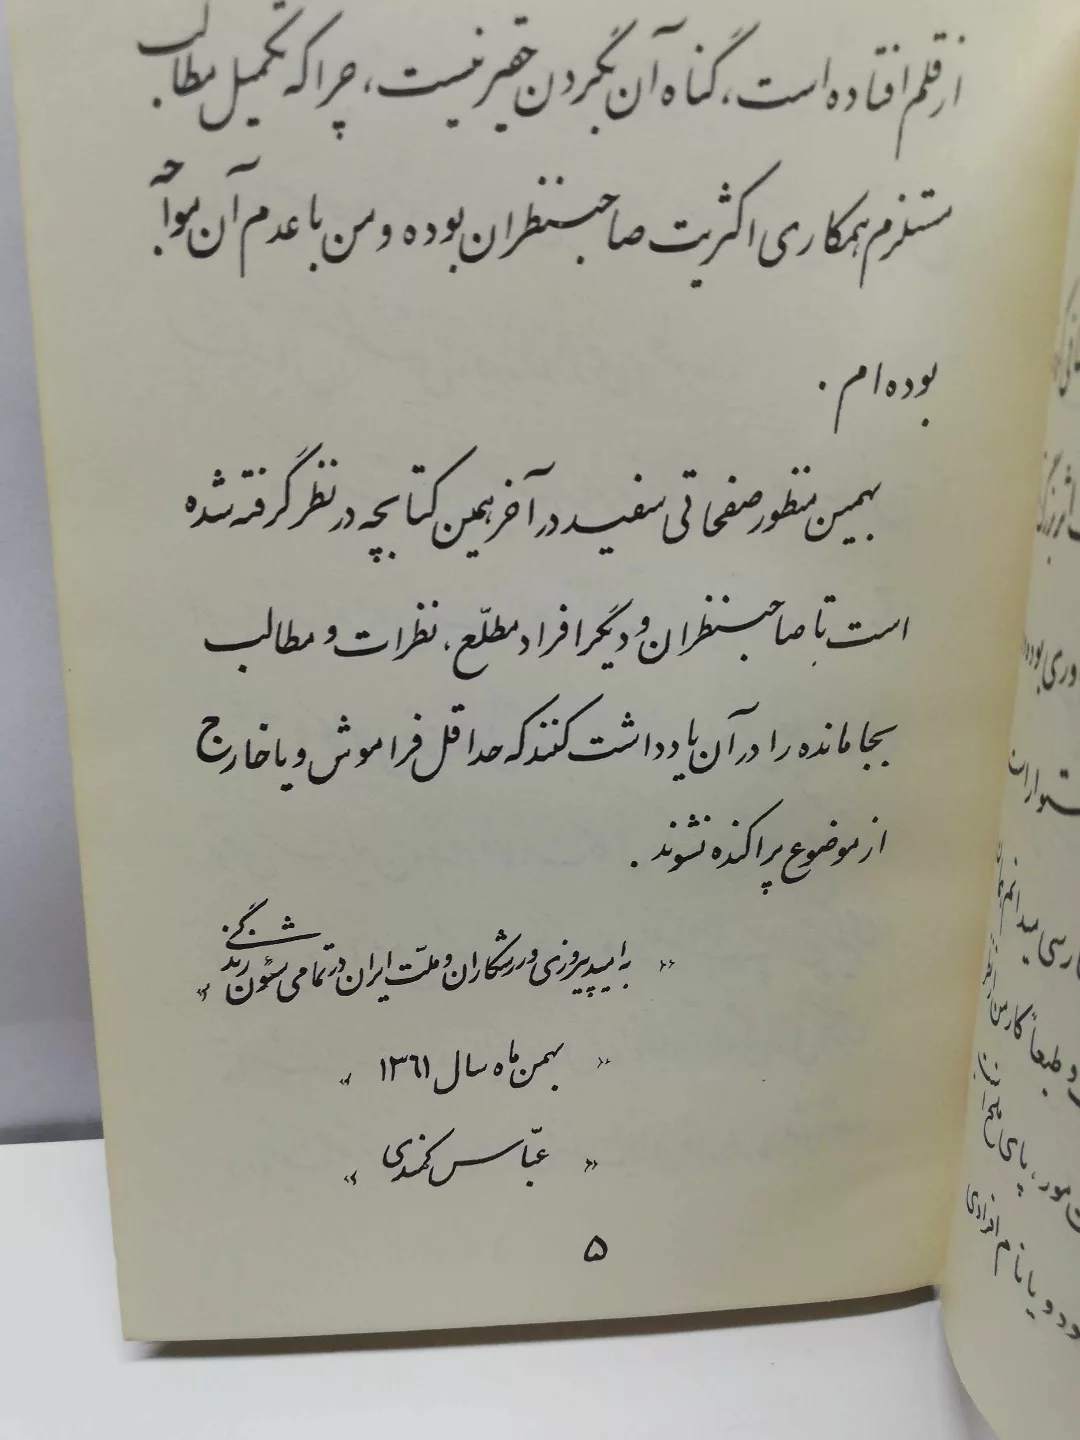 از قلم افتاده است، گناه آن بگردن حقیر نیست، چرا که تکمیل مطالب
مستلزم همکاری اکثریت صاحبنظران بوده و من با عدم آن مواجه
بوده ام .
بهمین منظور صفحاتی سفید در آخر همین کتابچه در نظر گرفته شده
است تا صاحبنظران و دیگر افراد مطلّع، نظرات و مطالب
بجا مانده را در آن یادداشت کنند که حداقل فراموش و یا خارج
از موضوع پراکنده نشوند .
« به امید پیروزی ورزشکاران و ملّت ایران در تمامی شئون زندگی »
« بهمن ماه سال ۱۳۶۱ »
« عبّاس کمندی »
۵